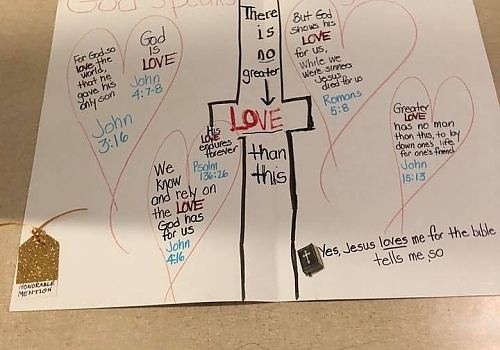 God speaks
There
is
no
greater
LOVE
than
this
For God so
love, the
world,
that he
gave his
only son
John
3:16
God
is
LOVE
John
4:7-8
His
LOVE
endures
forever
Psalm
136:26
We
know
and rely on
the LOVE
God has
for us
John
4:16
But God
shows his
LOVE
for us,
While we
were sinners
Jesus
died for us
Romans
5:8
Greater
LOVE
has no man
than this, to lay
down one's life
for one's friend
John
15:13
Yes, Jesus loves me for the bible
tells me, so
HONORABLE
MENTION